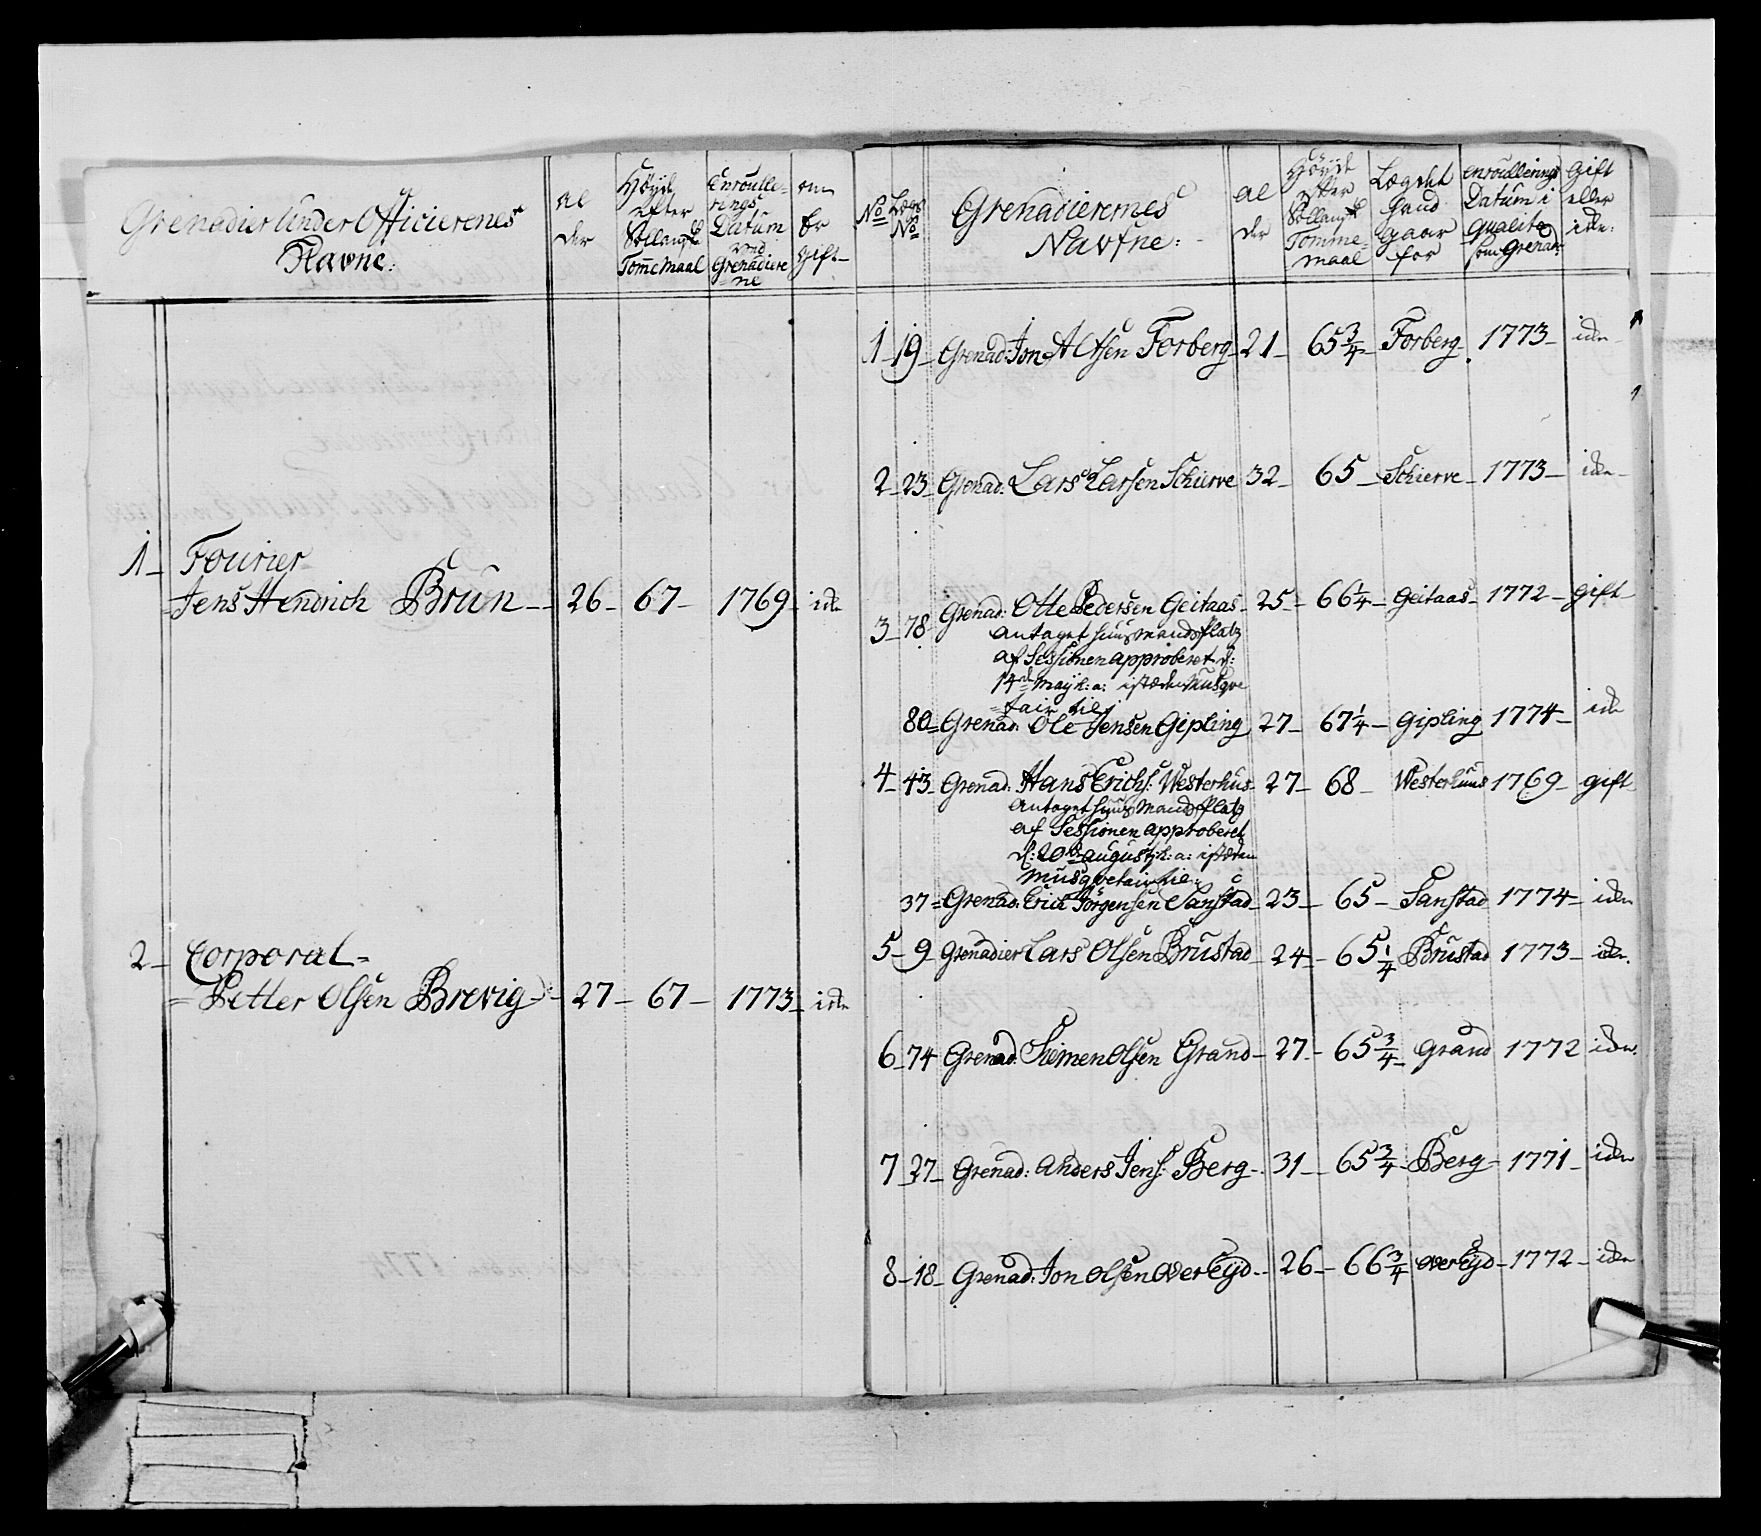 Grenadier Under Officierenes
Navne:
Al
der
Höyde
efter
Sællansk
Tomme Maal
Enroulle=
rings
Datum
ved
Grenadiere
=ne
om
Er
Gift
1 Fourier
Jens Hendrich Brun 26 67 1769 iden
2 Corporal
Petter Olsen Brevig 27 67 1773 iden
No Lægs
No
Grenadierernes
Navfne:
Al
der
Höyde
efter
Sællansk
Tomme=
maal
Lægdet
hand
gaar
for
Enroullerings
Datum i
Qualite
som Grenad:
Gift
eller
iden:
1 19 Grenad: Jon Olsen Forberg 21 65 3/4 Forberg 1773 iden
2 23 Grenad: Lars Larsen Schierve 32 65 Schierve 1773 iden
3 78 Grenad: Otte Pedersen Geitaas 25 66 1/4 Geitaas 1772 gift
Antaget huusmands Platz
af Sessionen approberet d:
14de May h: a: isteden Musqve
=tair til
80 Grenad: Ole Jensen Gipling 27 67 1/4 Gipling 1774 iden
4 43 Grenad: Hans Erichs: Westerhus 27 68 Westerhuus 1769 gift
Antaget huus Mands Platz
af Sessionen approberet
d: 20de august h: a: isteden
Musqvetair til
37 Grenad: Erich Jörgensen Sanstad 23 65 Sanstad 1774 iden
5 9 Grenadier Lars Olsen Brustad 24 65 1/4 Brustad 1773 iden.
6 74 Grenad: Siemen Olsen Grand 27 65 3/4 Grand 1772 iden.
7 27 Grenad: Anders Jens: Berg 31 65 3/4 Berg 1771 iden
8 18 Grenad: Jon Olsen over Eyd 26 66 3/4 over Eyd 1772 iden